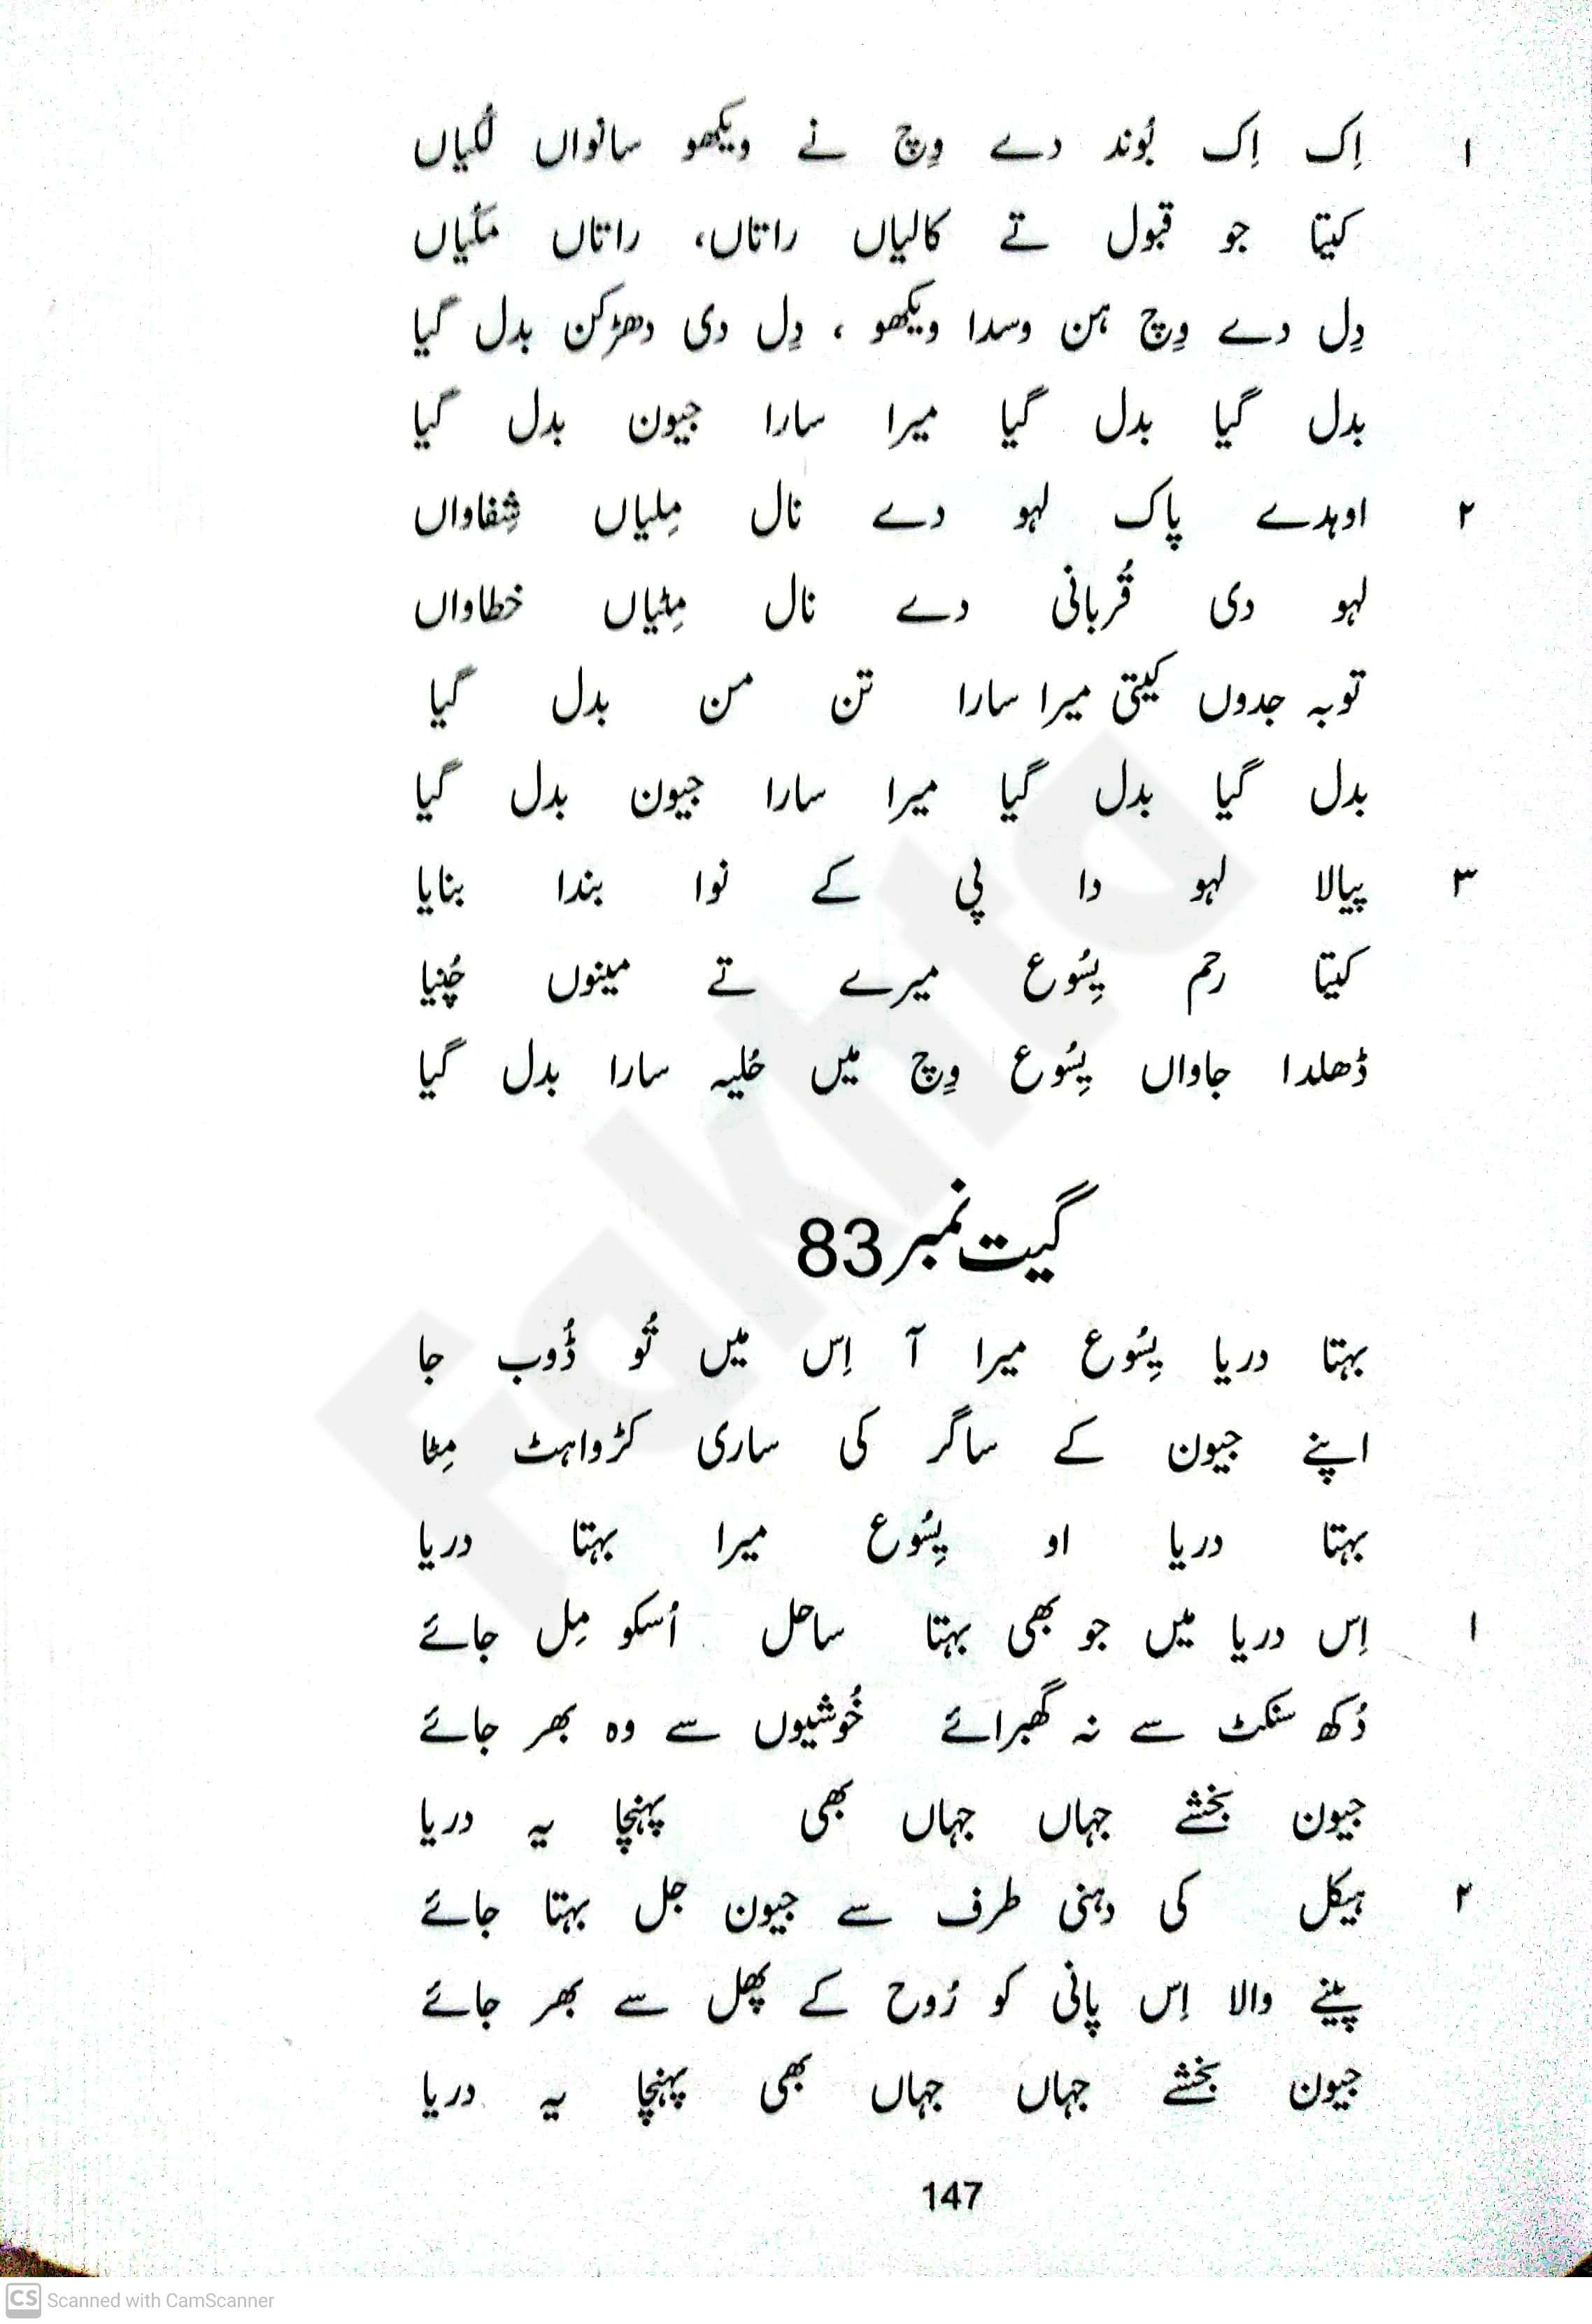 ۱ اِک اِک بُوند دے وِچ نے ویکھو سانواں لُکیاں
کیتا جو قبول تے کالیاں راتاں، راتاں مُکیاں
دِل دے وِچ ہن وسدا ویکھو ، دِل دی دھڑکن بدل گیا
بدل گیا بدل گیا میرا سارا جیون بدل گیا
۲ اوہدے پاک لہو دے نال مِلیاں شِفاواں
لہو دی قُربانی دے نال مِٹیاں خطاواں
توبہ جدوں کیتی میرا سارا تن من بدل گیا
بدل گیا بدل گیا میرا سارا جیون بدل گیا
۳ پیالا لہو دا پی کے نوا بندا بنایا
کیتا رحم یِسُوع میرے تے مینوں چُنیا
ڈھلدا جاواں یِسُوع وِچ میں حُلیہ سارا بدل گیا
گیت نمبر 83
بہتا دریا یِسُوع میرا آ اِس میں تُو ڈُوب جا
اپنے جیون کے ساگر کی ساری کڑواہٹ مِٹا
بہتا دریا او یِسُوع میرا بہتا دریا
۱ اِس دریا میں جو بھی بہتا ساحل اُسکو مِل جائے
دُکھ سنکٹ سے نہ گھبرائے خُوشیوں سے وہ بھر جائے
جیون بخشے جہاں جہاں بھی پہنچا یہ دریا
۲ ہیکل کی دہنی طرف سے جیون جل بہتا جائے
پینے والا اِس پانی کو رُوح کے پھل سے بھر جائے
جیون بخشے جہاں جہاں بھی پہنچا یہ دریا
147
Fakhta
CS Scanned with CamScanner